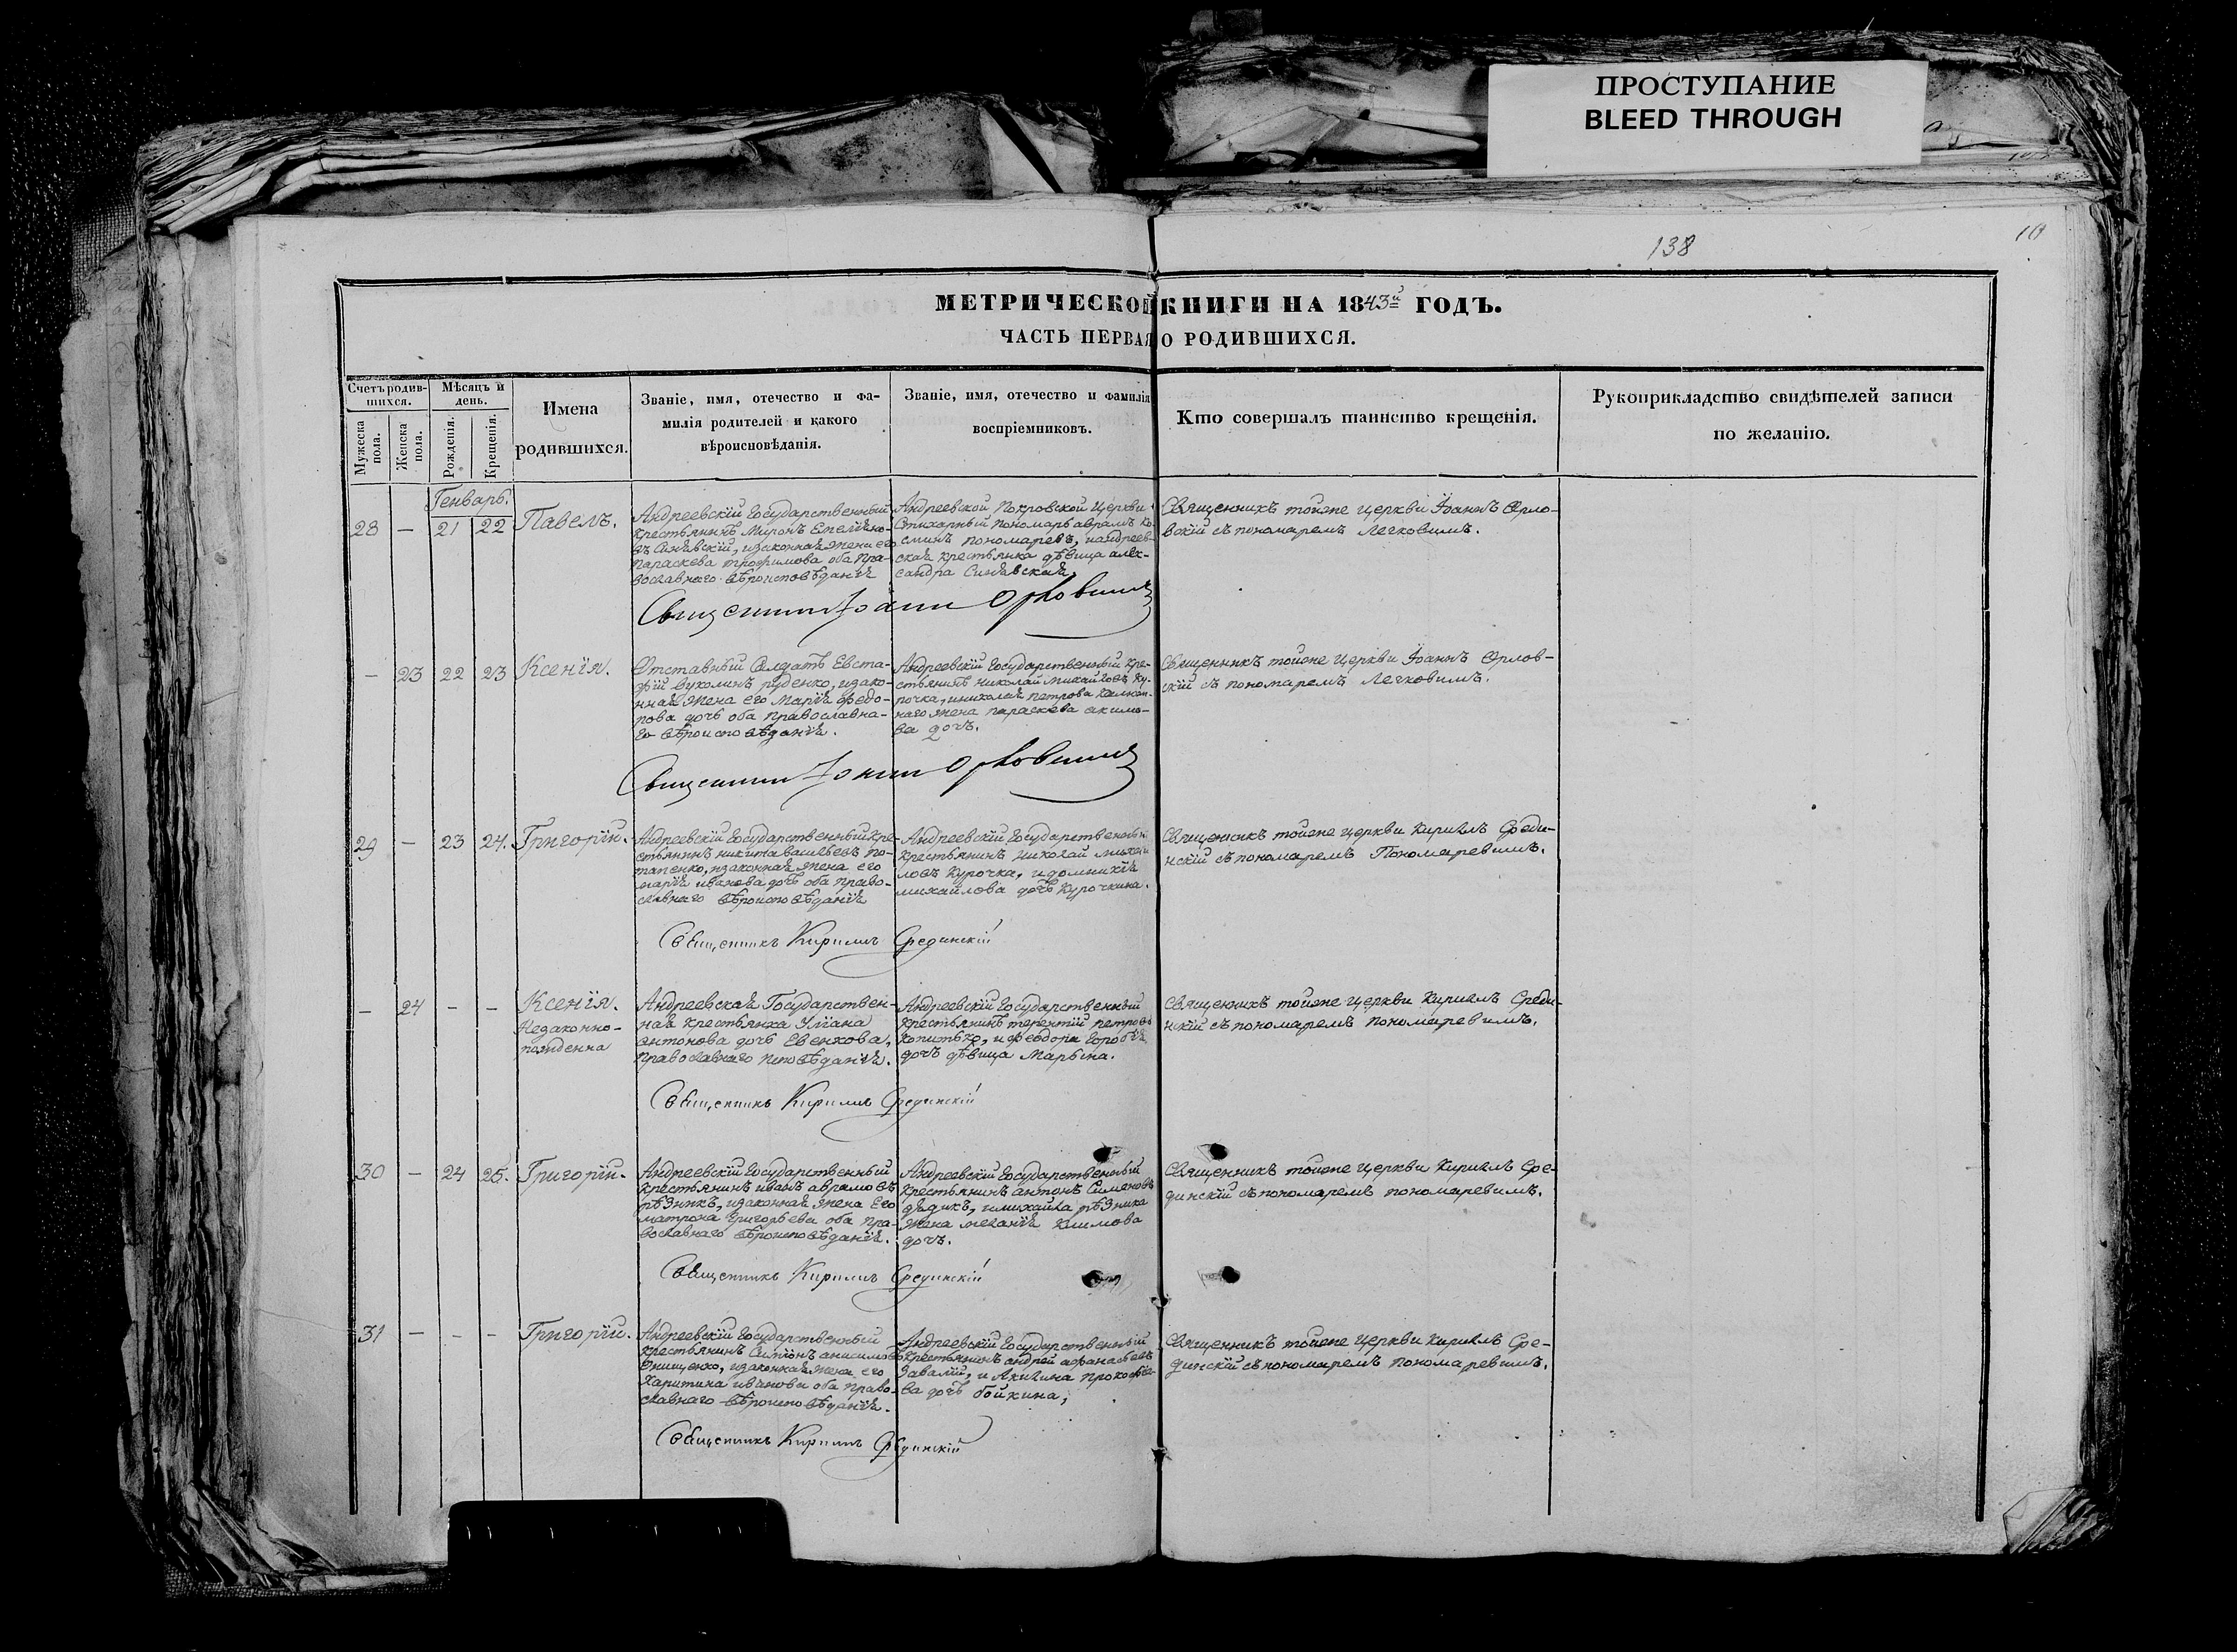 ПРОСТУПАНИЕ
BLEED THROUGH
138
10
МЕТРИЧЕСКОЙ КНИГИ НА 1843й ГОДЪ.
ЧАСТЬ ПЕРВАЯ О РОДИВШИХСЯ.
Счетъ родив-
шихся.
Мужеска
пола.
Женска
пола.
Мѣсяцъ и
день.
Рожденія.
Крещенія.
Имена
родившихся.
Званіе, имя, отечество и фа-
милія родителей и какого
вѣроисповѣданія.
Званіе, имя, отечество и фамилія
воспріемниковъ.
Кто совершалъ таинство крещенія.
Рукоприкладство свидѣтелей записи
по желанію.
Генварь.
28 — 21 22 Павелъ.
Андреевскій государственный
крестьянинъ Миронъ Емеліяно-
въ Синявскій, изаконная жена его
параскева трофимова оба пра-
вославнаго вѣроисповѣданія
Андреевской Покровской Церкви
Стихарный пономарь аврамъ ко-
сминъ пономаревъ, иандреев-
ская крестьянка дѣвица алек-
сандра Синявская.
Священникъ тойже церкви Іоаннъ Орло-
вскій съ пономаремъ Легковимъ.
Священникъ Іоаннъ Орловскій
— 23 22 23 Ксенія.
Отставный Солдатъ Евста-
фій Вуколинъ руденко, изако-
нная жена его Марія федо-
рова дочь оба православна-
го вѣроисповѣданія.
Андреевскій государственный кре-
стьянинъ николай михайловъ Ку-
рочка, иниколая петрова
наго жена параскева акимо-
ва дочь.
Священникъ тойже церкви Іоаннъ Орлов-
скій съ пономаремъ Легковимъ.
Священникъ Іоаннъ Орловскій
29 — 23 24. Григорій.
Андреевскій государственный кре-
стьянинъ никита васильевъ по-
тапенко, изаконная жена его
марія иванова дочь оба право-
славнаго вѣроисповѣданія
Андреевскій государственный
крестьянинъ николай михай-
ловъ Курочка, идомникія
михайлова дочь Курочкина.
Священникъ тойже церкви Кирилъ Среди-
нскій съ пономаремъ Пономаревимъ.
Священникъ Кирилъ Срединскій
— 24 - - Ксенія.
Незаконно-
рожденна
Андреевская Государствен-
ная крестьянка Уліана
антонова дочь Евенкова,
православнаго исповѣданія.
Андреевскій государственный
крестьянинъ терентій петровъ
копитько, и феодора
дочь дѣвица Марьина.
Священникъ тойже церкви Кирилъ Среди-
нскій съ пономаремъ пономаревимъ.
Священникъ Кирилъ Срединскій
30 — 24 25. Григорій.
Андреевскій государственный
крестьянинъ иванъ аврамовъ
рѣзникъ, изаконная жена его
матрона григорьева оба пра-
вославнаго вѣроисповѣданія.
Андреевскій государственный
крестьянинъ антонъ Симеоновъ
дядикъ, имихайла рѣзника
жена меланія климова
дочь.
Священникъ тойже церкви Кирилъ Сре-
динскій съ пономаремъ пономаревимъ.
Священникъ Кирилъ Срединскій
31 — - - Григорій.
Андреевскій государственный
крестьянинъ Симіонъ анисимовъ
Онищенко, изаконная жена его
Харитина иванова оба право-
славнаго вѣроисповѣданія.
Андреевскій государственный
крестьянинъ андрей афанасьевъ
Завалій, и Акилина прокофіе-
ва дочь бойкина,
Священникъ тойже церкви Кирилъ Сре-
динскій съ пономаремъ пономаревимъ.
Священникъ Кирилъ Срединскій